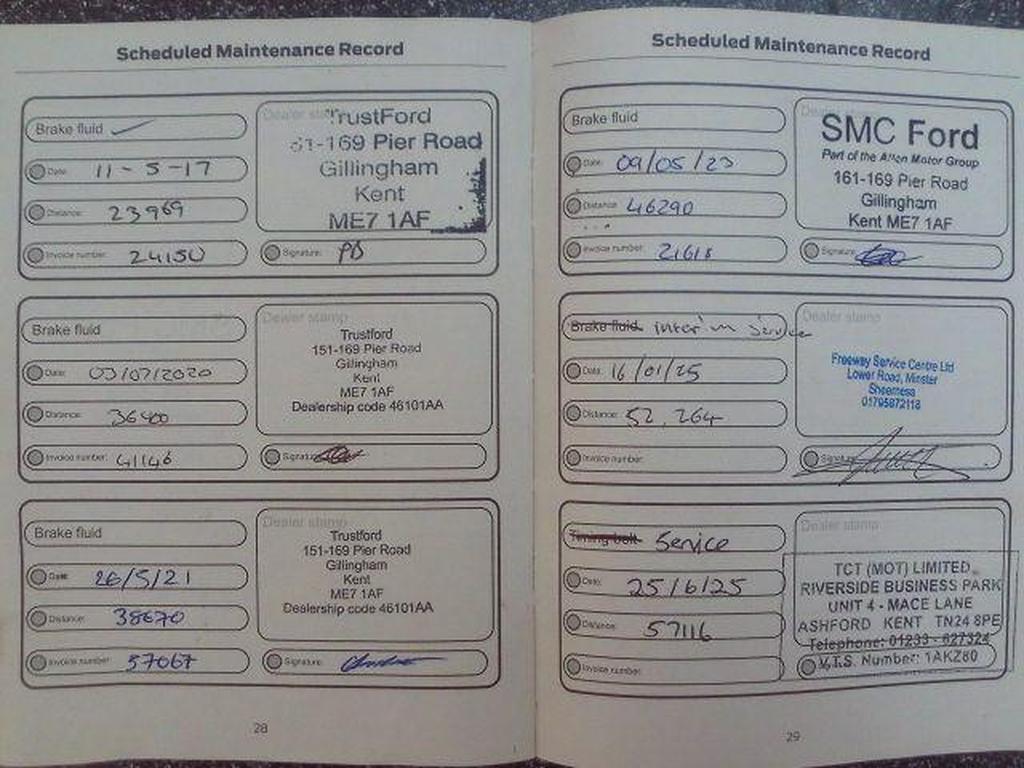 Scheduled Maintenance Record
Brake fluid ✓
Date: 11-5-17
Distance: 23969
Invoice number: 24150
Dealer stamp
TrustFord
51-169 Pier Road
Gillingham
Kent
ME7 1AF
Signature: PB
Brake fluid
Date: 03/07/2020
Distance: 36400
Invoice number: 41146
Dealer stamp
Trustford
151-169 Pier Road
Gillingham
Kent
ME7 1AF
Dealership code 46101AA
Signature:
Brake fluid
Date: 26/5/21
Distance: 38670
Invoice number: 57067
Dealer stamp
Trustford
151-169 Pier Road
Gillingham
Kent
ME7 1AF
Dealership code 46101AA
Signature:
28
Scheduled Maintenance Record
Brake fluid
Date: 09/05/23
Distance: 46290
Invoice number: 21618
Dealer stamp
SMC Ford
Part of the Alton Motor Group
161-169 Pier Road
Gillingham
Kent ME7 1AF
Signature:
Brake fluid interim Service
Date: 16/01/25
Distance: 52,264
Invoice number:
Dealer stamp
Freeway Service Centre Ltd
Lower Road, Minster
Sheerness
01795872118
Signature:
Timing belt Service
Date: 25/6/25
Distance: 57116
Invoice number:
Dealer stamp
TCT (MOT) LIMITED
RIVERSIDE BUSINESS PARK
UNIT 4 - MACE LANE
ASHFORD KENT TN24 8PE
Telephone: 01233 - 627324
V.T.S. Number: 1AKZ80
29